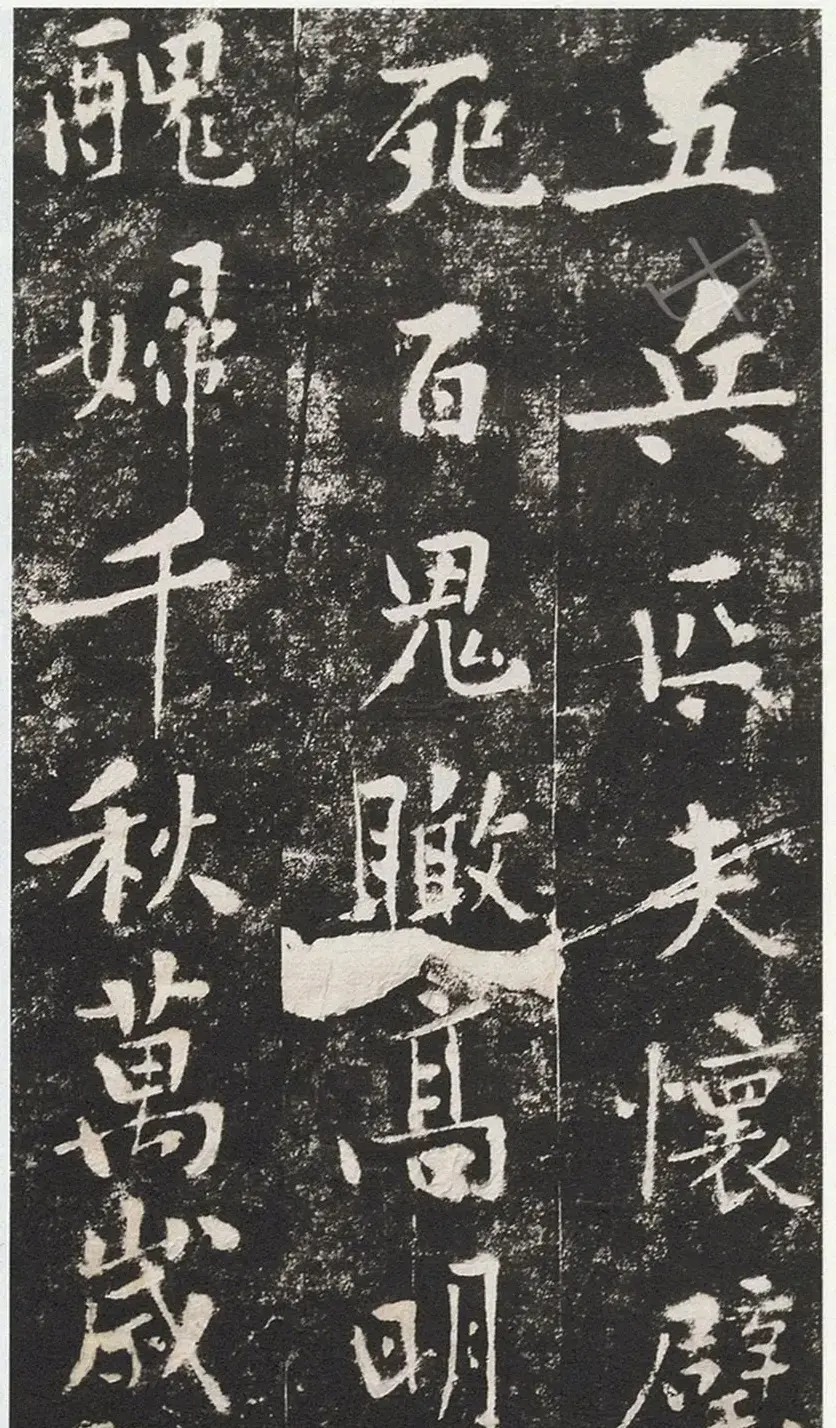 五兵匹夫懷璧
死百鬼瞰高明
醜婦千秋萬歲